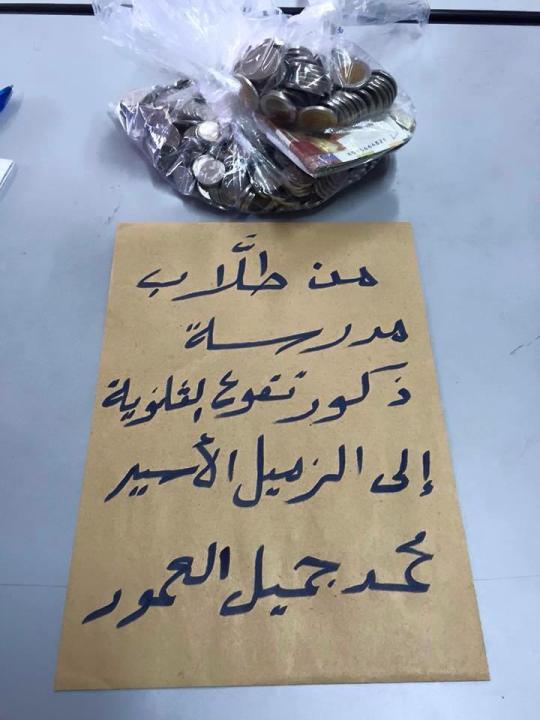 من طلَّاب
مدرسة
ذكور تقوع الثانوية
إلى الزميل الأسير
محمد جميل العمور